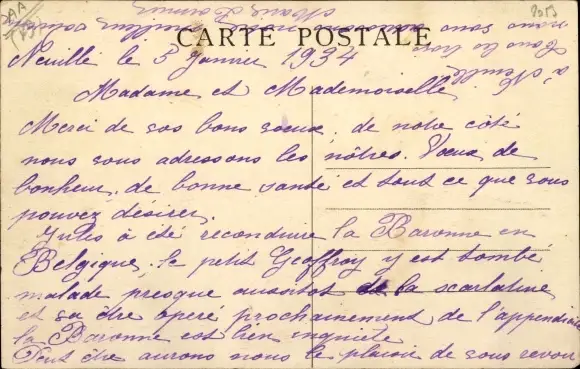 CARTE POSTALE
Neuville le 3 Janvier 1934
Madame et Mademoiselle
Merci de vos bons voeux, de notre côté
nous vous adressons les nôtres. Voeux de
bonheur, de bonne santé et tout ce que vous
pouvez désirer.
Jules à été reconduire la Baronne en
Belgique, le petit Geoffroy y est tombé
malade presque aussitot de la scarlatine
et va être opéré prochainement de l'appendicite
la Baronne est bien inquiète
Peut être aurons nous le plaisir de vous revoir
à Neuville
Tous les trois
nous vous